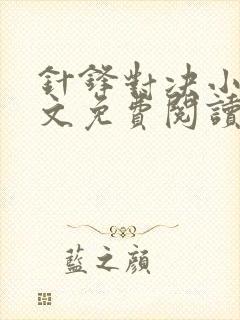 針鋒對决小
文免費閱讀
藍之顏